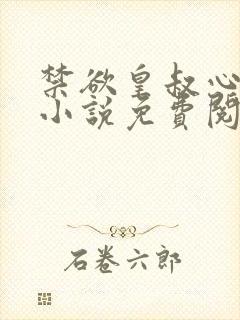 禁欲皇叔心
小說免費閱
石卷六郎